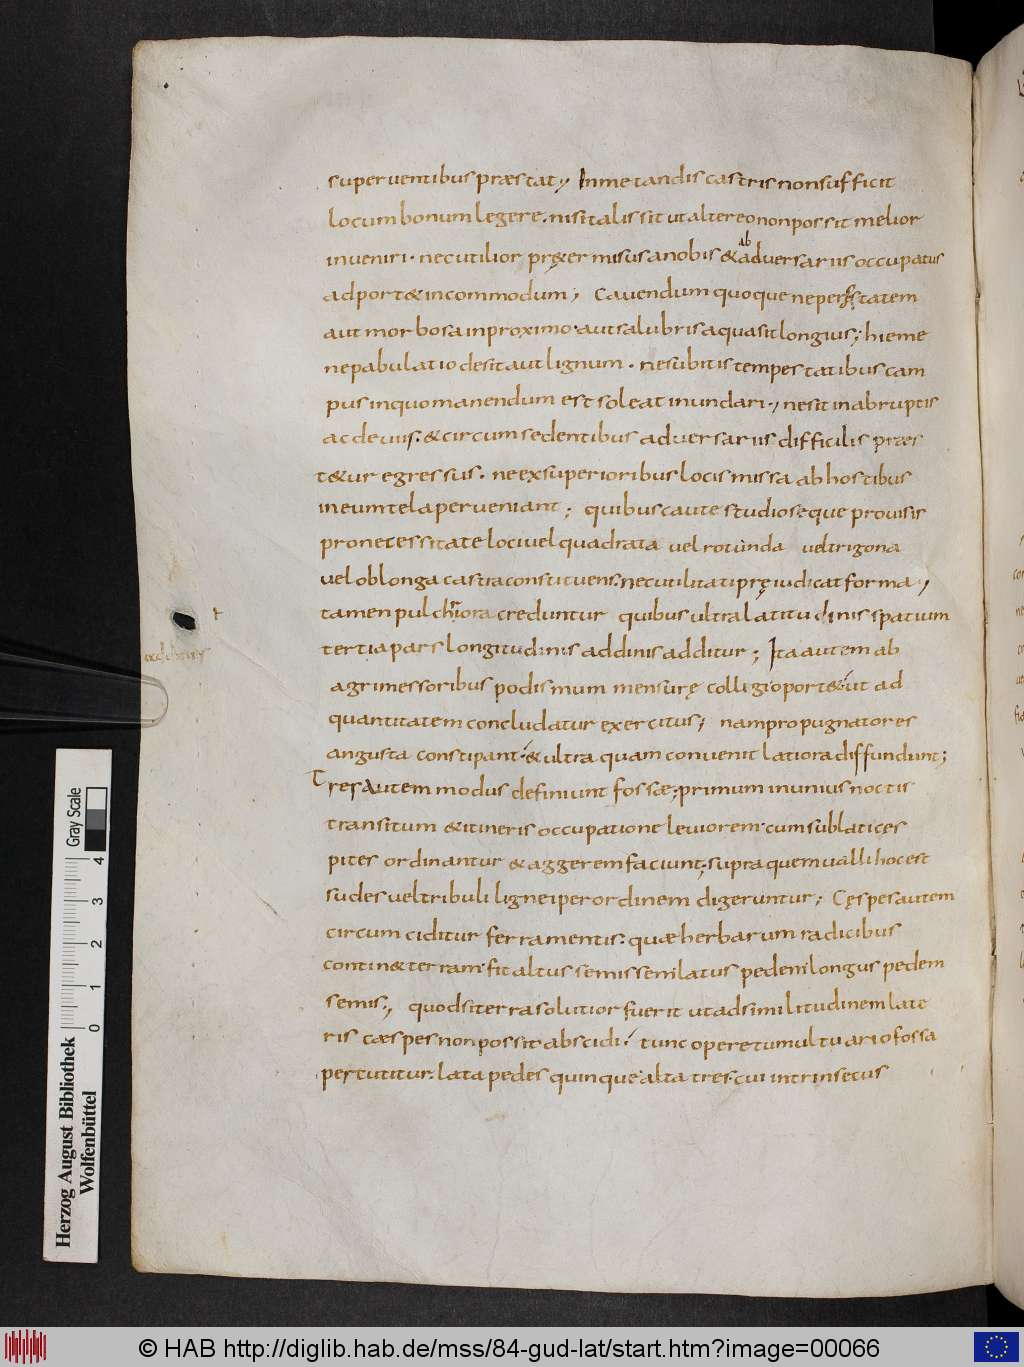 superventibus præstat; Inmetandis castris nonsufficit
locum bonum legere. nisi talis sit ut alter eo non possit melior
inveniri. nec utilior prętermisus a nobis & ab adversariis occupatus
adport& incommodum; Cavendum quoque ne per æstatem
aut morbosa in proximo. aut salubris aqua sit longius; hieme
ne pabulatio desit aut lignum. ne subitis tempestatibus cam
pus in quo manendum est soleat inundari; ne sit in abruptis
ac deviis. & circumsedentibus adversariis difficilis præs
t&ur egressus. ne ex superioribus locis missa ab hostibus
in eum tela perveniant; quibus caute studioseque provisis
pro necessitate loci vel quadrata vel rotunda vel trigona
vel oblonga castra constituens. nec utilitati pręiudicat forma;
tamen pulchriora creduntur quibus ultra latitudinis spatium
tertia pars longitudinis addinis additur; Ita autem ab
agrimessoribus podismum mensurę collegi oport& ut ad
quantitatem concludatur exercitus; nam propugnatores
angusta constipant. & ultra quam convenit latiora diffundunt;
Tres autem modus definiunt fossæ; primum in unius noctis
transitum & itineris occupatione leviorem. cum sublati ces
pites ordinantur & aggerem faciunt; supra quem valli hoc est
sudes vel tribuli lignei per ordinem digeruntur; Cęspes autem
circumciditur ferramentis. quæ herbarum radicibus
contin& terram. fit altus semissem latus pedem longus pedem
semis; quod si terra solutior fuerit ut ad similitudinem late
ris cæspes non possit abscidi. tunc opere tumultuario fossa
percutitur. lata pedes quinque. alta tres. cui intrinsecus
Gray Scale
0 1 2 3 4
Herzog August Bibliothek
Wolfenbüttel
© HAB http://diglib.hab.de/mss/84-gud-lat/start.htm?image=00066